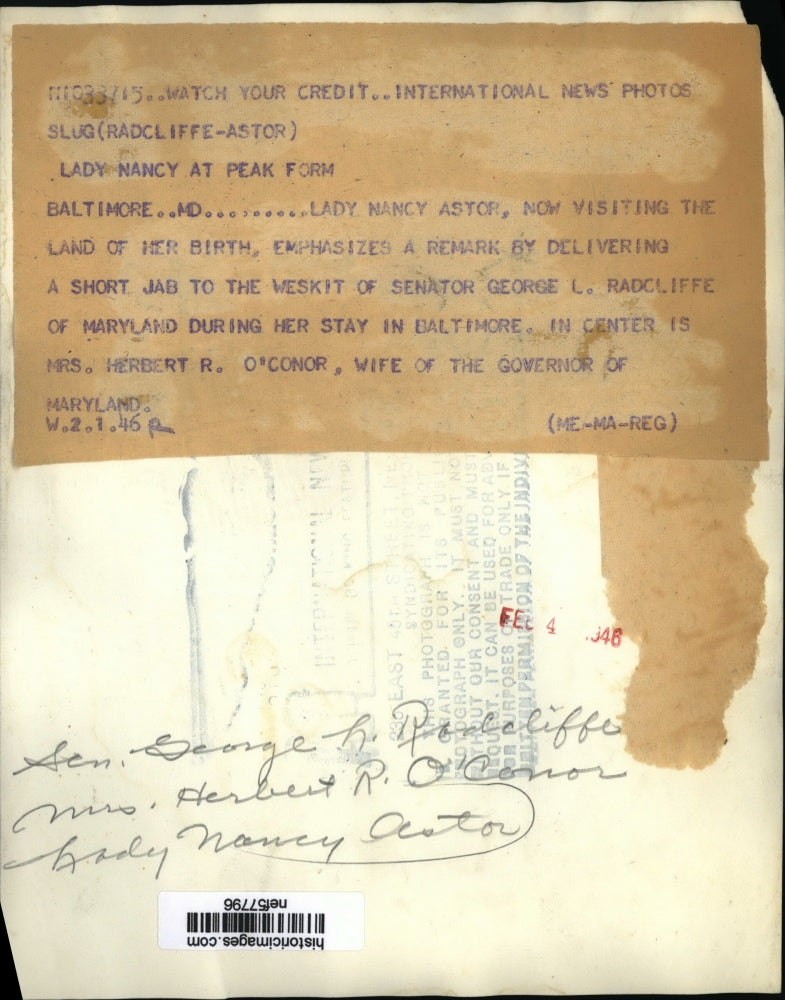 WATCH YOUR CREDIT..INTERNATIONAL NEWS PHOTOS
SLUG(RADCLIFFE-ASTOR)
LADY NANCY AT PEAK FORM
BALTIMORE..MD..........LADY NANCY ASTOR, NOW VISITING THE
LAND OF HER BIRTH, EMPHASIZES A REMARK BY DELIVERING
A SHORT JAB TO THE WESKIT OF SENATOR GEORGE L. RADCLIFFE
OF MARYLAND DURING HER STAY IN BALTIMORE. IN CENTER IS
MRS. HERBERT R. O'CONOR, WIFE OF THE GOVERNOR OF
MARYLAND.
W.2.1.46
(ME-MA-REG)
EAST 45TH STREET
PHOTOGRAPH IS
GRANTED FOR ITS
ONLY. IT MUST NOT
OUR CONSENT AND MUST
IT CAN BE USED FOR ADV
TRADE ONLY IF
OF THE INDIV
FEB 4 1946
Sen. George L. Radcliffe
Mrs. Herbert R. O'Conor
Lady Nancy Astor
historicimages.com
nef57796